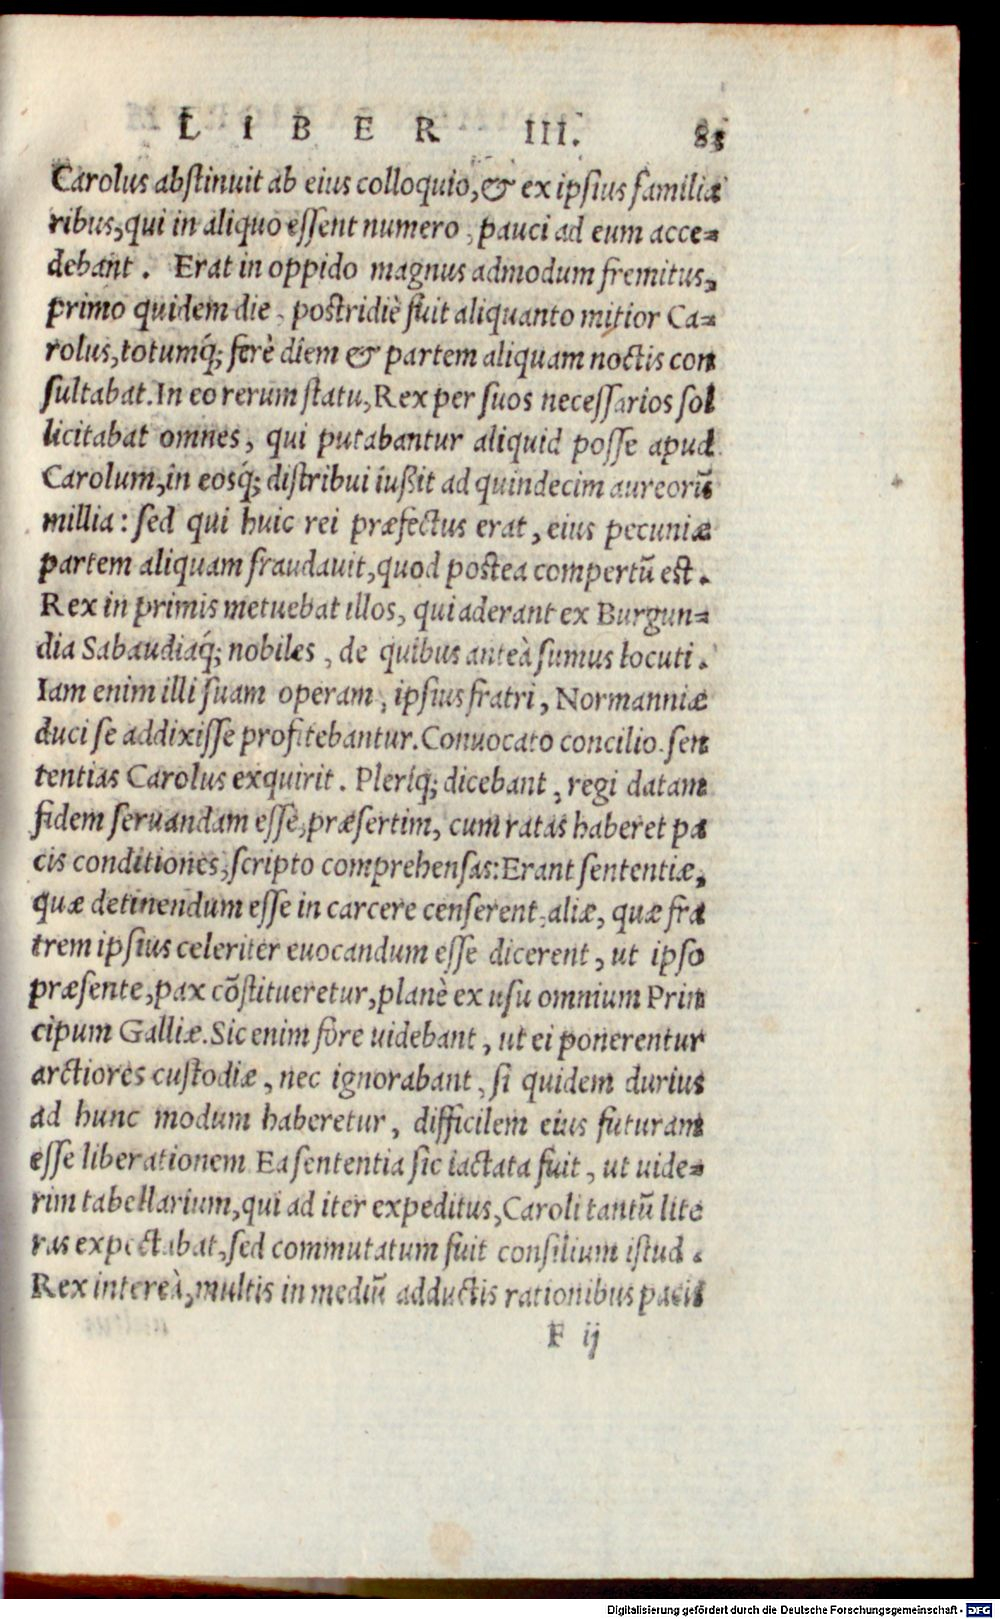 LIBER III. 83
Carolus abstinuit ab eius colloquio, & ex ipsius familia
ribus, qui in aliquo essent numero, pauci ad eum acce=
debant. Erat in oppido magnus admodum fremitus,
primo quidem die, postridiè fuit aliquanto mitior Ca=
rolus, totumq́; ferè diem & partem aliquam noctis con
sultabat. In eo rerum statu, Rex per suos necessarios sol
licitabat omnes, qui putabantur aliquid posse apud
Carolum, in eosq́; distribui iußit ad quindecim aureorū
millia: sed qui huic rei præfectus erat, eius pecuniæ
partem aliquam fraudauit, quod postea compertū est.
Rex in primis metuebat illos, qui aderant ex Burgun=
dia Sabaudiaq́; nobiles, de quibus anteà sumus locuti.
Iam enim illi suam operam, ipsius fratri, Normanniæ
duci se addixisse profitebantur. Conuocato concilio. sen
tentias Carolus exquirit. Pleriq; dicebant, regi datam
fidem seruandam esse, præsertim, cum ratas haberet pa
cis conditiones, scripto comprehensas: Erant sententiæ,
quæ detinendum esse in carcere censerent, aliæ, quæ fra
trem ipsius celeriter euocandum esse dicerent, ut ipso
præsente, pax cōstitueretur, planè ex usu omnium Prin
cipum Galliæ. Sic enim fore uidebant, ut ei ponerentur
arctiores custodiæ, nec ignorabant, si quidem durius
ad hunc modum haberetur, difficilem eius futuram
esse liberationem Ea sententia sic iactata fuit, ut uide=
rim tabellarium, qui ad iter expeditus, Caroli tantū lite
ras expectabat, sed commutatum fuit consilium istud.
Rex intereà, multis in mediū adductis rationibus pacis
F ij
Digitalisierung gefördert durch die Deutsche Forschungsgemeinschaft - DFG